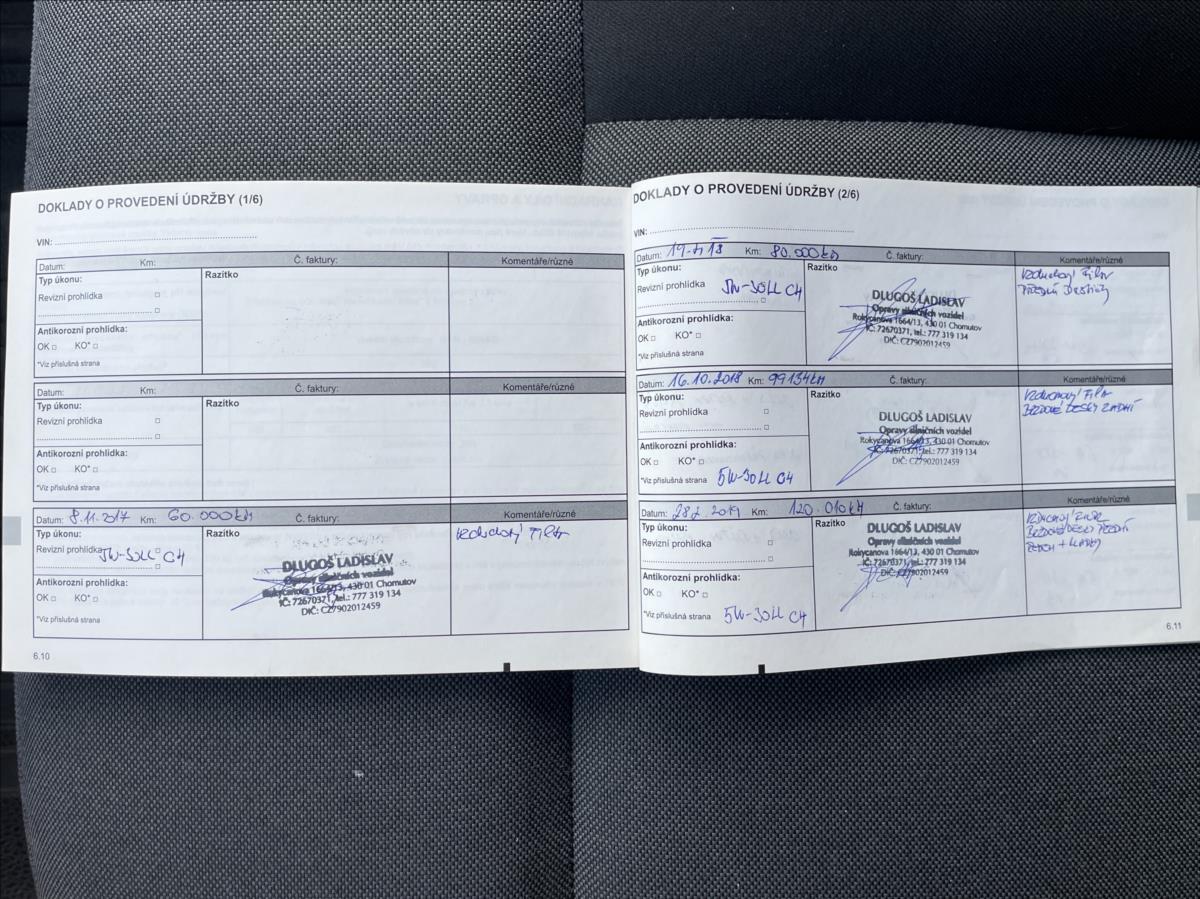 DOKLADY O PROVEDENÍ ÚDRŽBY (1/6)
VIN:
Datum: Km: Č. faktury: Komentáře/různé
Typ úkonu: Razítko
Revizní prohlídka
Antikorozní prohlídka:
OK KO*
*Viz příslušná strana
Datum: Km: Č. faktury: Komentáře/různé
Typ úkonu: Razítko
Revizní prohlídka
Antikorozní prohlídka:
OK KO*
*Viz příslušná strana
Datum: 8.11.2017 Km: 60.000km Č. faktury: Komentáře/různé
Typ úkonu: Razítko
Revizní prohlídka 5W-30LL C4
Antikorozní prohlídka:
OK KO*
*Viz příslušná strana
DLUGOŠ LADISLAV
Opravy silničních vozidel
Rokycanova 1664/13, 430 01 Chomutov
IČ: 72670371, tel.: 777 319 134
DIČ: CZ7902012459
Vzduchový Filtr
6.10
DOKLADY O PROVEDENÍ ÚDRŽBY (2/6)
VIN:
Datum: Km: 80.000km Č. faktury: Komentáře/různé
Typ úkonu: Razítko
Revizní prohlídka 5W-30LL C4
Antikorozní prohlídka:
OK KO*
*Viz příslušná strana
DLUGOŠ LADISLAV
Opravy silničních vozidel
Rokycanova 1664/13, 430 01 Chomutov
IČ: 72670371, tel.: 777 319 134
DIČ: CZ7902012459
Vzduchový Filtr
Datum: 16.10.2018 Km: 99134km Č. faktury: Komentáře/různé
Typ úkonu: Razítko
Revizní prohlídka
Antikorozní prohlídka:
OK KO*
*Viz příslušná strana 5W-30LL C4
DLUGOŠ LADISLAV
Opravy silničních vozidel
Rokycanova 1664/13, 430 01 Chomutov
IČ: 72670371, tel.: 777 319 134
DIČ: CZ7902012459
Vzduchový Filtr
Datum: Km: 120.010km Č. faktury: Komentáře/různé
Typ úkonu: Razítko
Revizní prohlídka
Antikorozní prohlídka:
OK KO*
*Viz příslušná strana 5W-30LL C4
DLUGOŠ LADISLAV
Opravy silničních vozidel
Rokycanova 1664/13, 430 01 Chomutov
IČ: 72670371, tel.: 777 319 134
DIČ: CZ7902012459
6.11